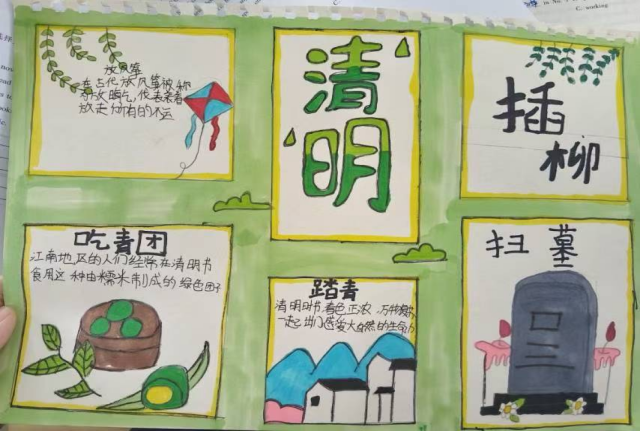 放风筝
在古代放风筝被称
为放晦气,代表着
放走所有的不运
清
明
插
柳
吃青团
江南地区的人们经常在清明节
食用这种由糯米制成的绿色团子
踏青
清明时节春色正浓
一起出门感受大自然的生命力
扫墓
C. working